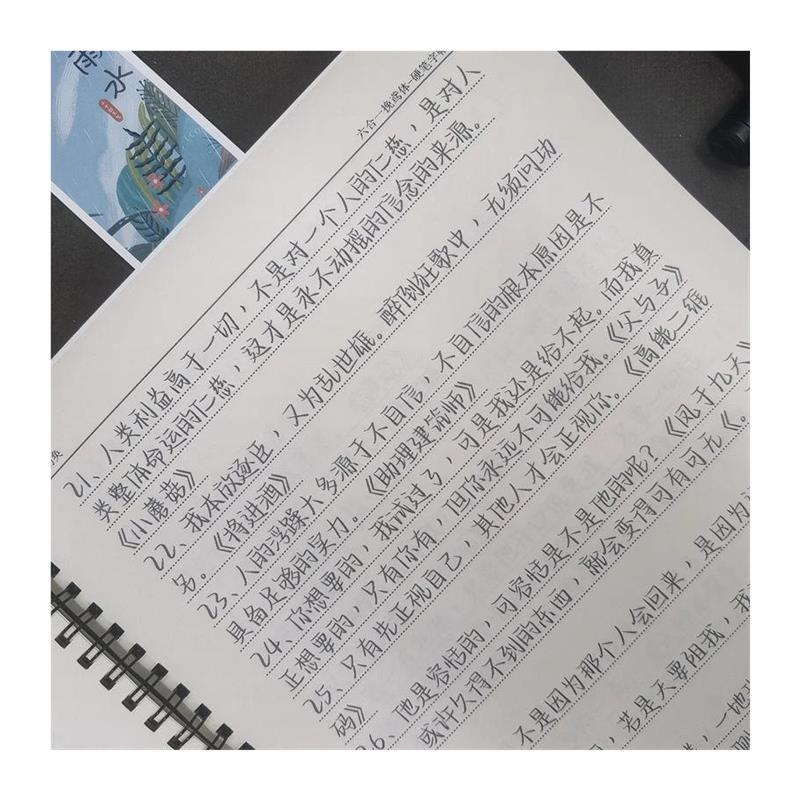 雨水
六合一挽鸢体-硬笔字帖
21、人类利益高于一切，不是对一个人的仁慈，是对人
类整体命运的仁慈，这才是永不动摇的信念的来源。
《小蘑菇》
22、我本放逐臣，又为乱世雄。醉倒狂歌中，无须问功
名。《将进酒》
23、人的浮躁大多源于不自信，不自信的根本原因是不
具备足够的实力。《助理建筑师》
24、你想要的，我试过了，可是我还是给不起。而我真
正想要的，只有你有，但你永远不可能给我。《父与子》
25、只有先正视自己，其他人才会正视你。《高能二维
码》
26、他是容恬的，可容恬是不是他的呢？《凤于九天》
或许久得不到的东西，就会变得可有可无《。
不是因为那个人会回来，是因为
若是天要阻我，我
一地